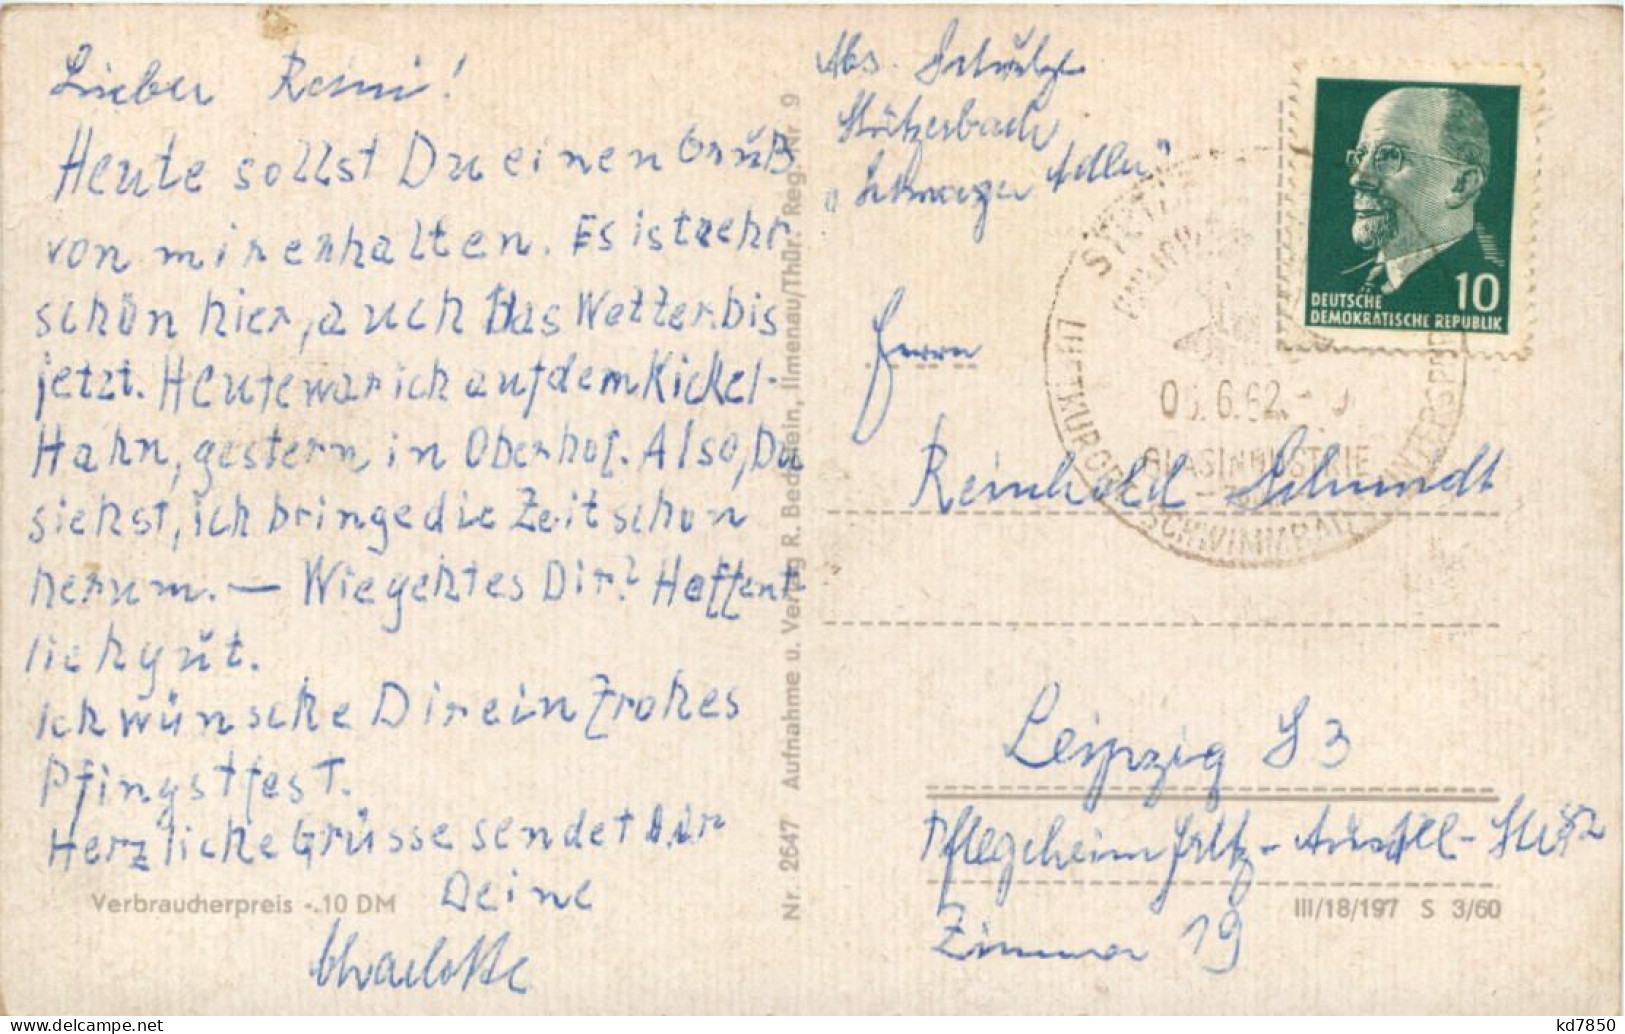 Lieber Reini!
Heute sollst Du einen Gruß
von mir erhalten. Es ist sehr
schön hier, auch das Wetter bis
jetzt. Heute war ich auf dem Kickel-
Hahn, gestern in Oberhof. Also, Du
siehst, ich bringe die Zeit schon
herum. — Wie geht es Dir? Hoffent
lich gut.
Ich wünsche Dir ein frohes
Pfingstfest.
Herzliche Grüsse sendet Dir
Deine
Charlotte
Verbraucherpreis -.10 DM
Nr. 2647 Aufnahme u. Verlag R. Bechstein, Ilmenau/Thür. Reg.-Nr. 9
Abs. Schulze
Stützerbach
"Schwarzer Adler"
DEUTSCHE
DEMOKRATISCHE REPUBLIK
10
6.62.
GLASINDUSTRIE
LUFTKURORT SCHWIMMBAD WINTERSP
Herrn
Reinhold Schmidt
Leipzig S3
Pflegeheim Fritz-Austel-Str.
Zimmer 19
III/18/197 S 3/60
kd7850